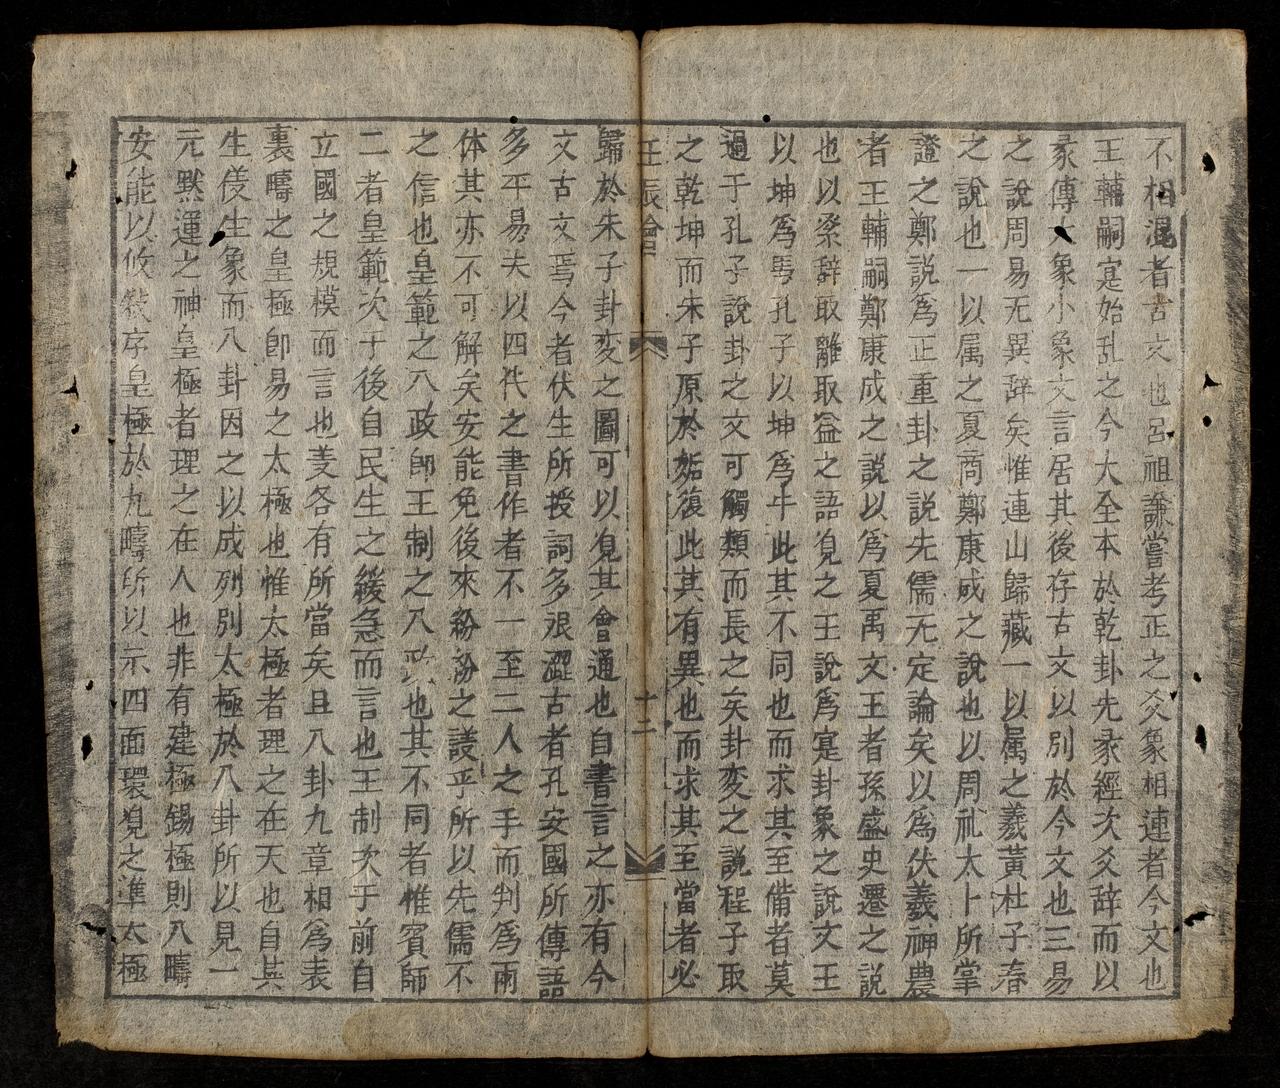 不相混者古文也呂祖謙嘗考正之爻象相連者今文也
王輔嗣寔始乱之今大全本於乾卦先彖經次爻辞而以
彖傳大象小象文言居其後存古文以別於今文也三易
之說周易无異辞矣惟連山歸藏一以属之羲黃杜子春
之說也一以属之夏商鄭康成之說也以周礼太卜所掌
證之鄭説爲正重卦之説先儒无定論矣以爲伏羲神農
者王輔嗣鄭康成之説以爲夏禹文王者孫盛史遷之説
也以繫辞取離取益之語見之王說爲寔卦象之說文王
以坤爲馬孔子以坤爲牛此其不同也而求其至備者莫
過于孔子說卦之文可觸類而長之矣卦変之說程子取
之乾坤而朱子原於姤復此其有異也而求其至當者必
王 會
十二
歸於朱子卦変之圖可以見其會通也自書言之亦有今
文古文焉今者伏生所授詞多艰澀古者孔安國所傳語
多平易夫以四代之書作者不一至二人之手而判爲兩
体其亦不可解矣安能免後來紛紛之議乎所以先儒不
之信也皇範之八政卽王制之八政也其不同者惟賓師
二者皇範次于後自民生之緩急而言也王制次于前自
立國之規模而言也爰各有所當矣且八卦九章相爲表
裏疇之皇極卽易之太極也惟太極者理之在天也自其
生儀生象而八卦因之以成列別太極於八卦所以見一
元默運之神皇極者理之在人也非有建極錫極則八疇
安能以攸敘序皇極於九疇所以示四面環覌之準太極